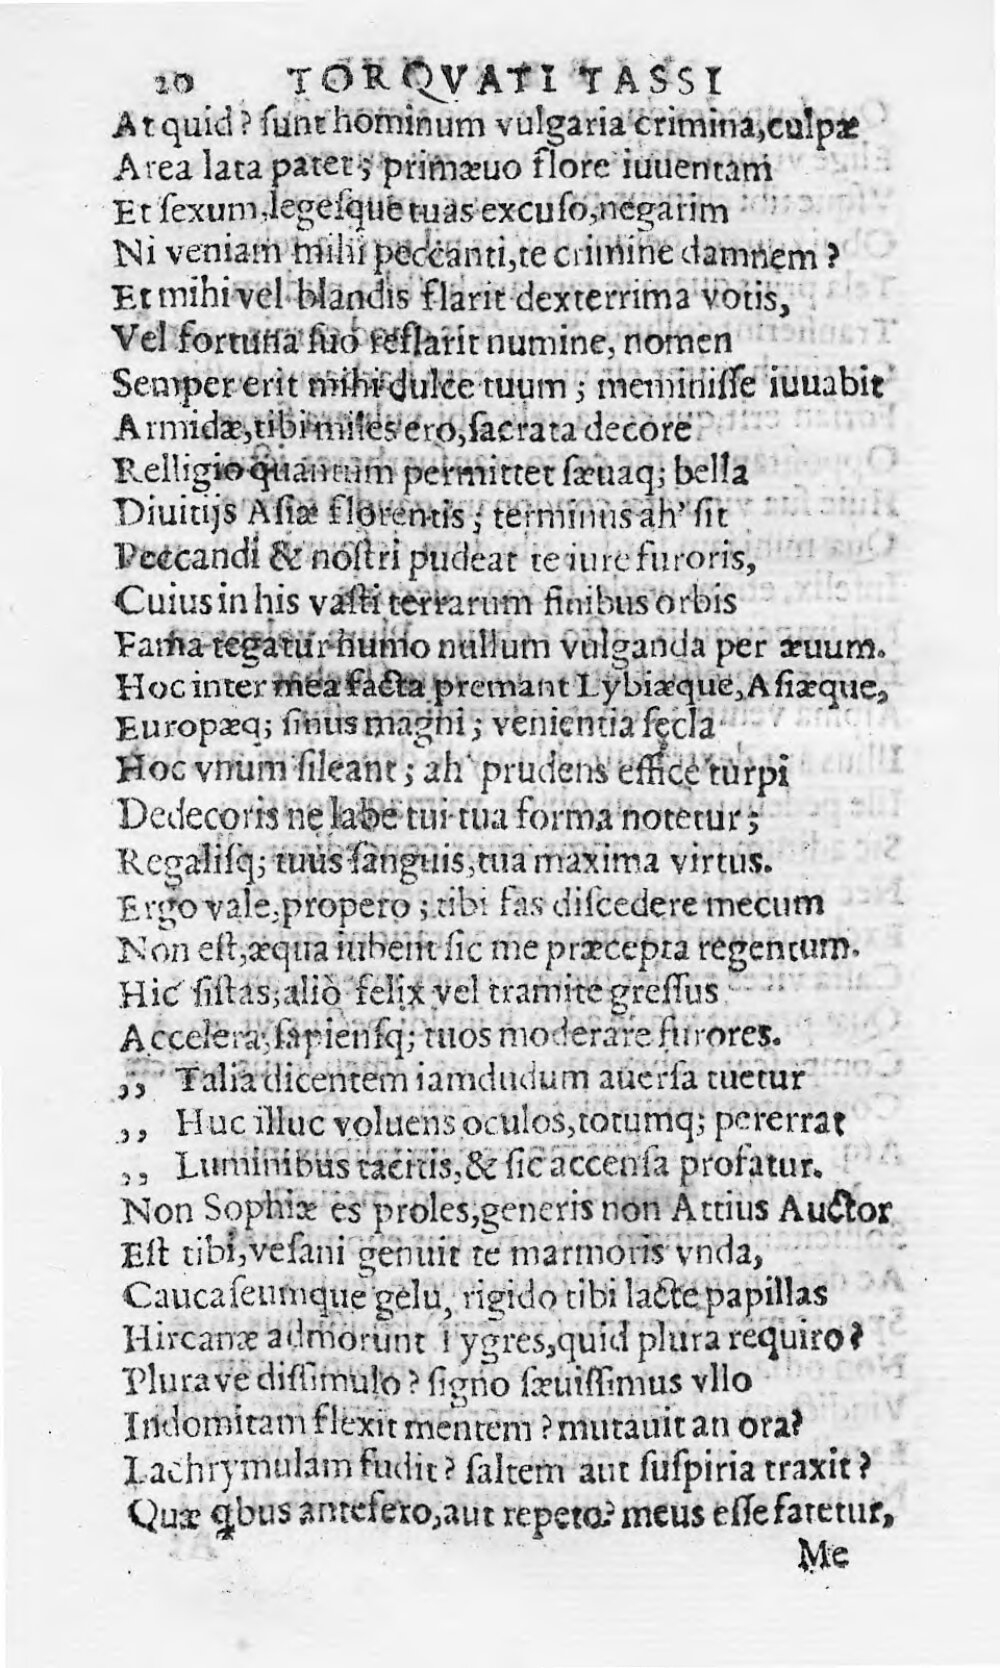 20 TORQVATI TASSI
At quid? ſunt hominum vulgaria crimina, culpæ
Area lata patet; primæuo flore iuuentam
Et ſexum, legeſque tuas excuſo, negarim
Ni veniam mihi peccanti, te crimine damnem?
Et mihi vel blandis flarit dexterrima votis,
Vel fortuna ſuo reflarit numine, nomen
Semper erit mihi dulce tuum; meminiſſe iuuabit
Armidæ, tibi miles ero, ſacrata decore
Relligio quantum permittet ſæuaq; bella
Diuitijs Aſiæ florentis; terminus ah' ſit
Peccandi & noſtri pudeat te iure furoris,
Cuius in his vaſti terrarum finibus orbis
Fama tegatur humo nullum vulganda per æuum.
Hoc inter mea facta premant Lybiæque, Aſiæque,
Europæq; ſinus magni; venientia ſęcla
Hoc vnum ſileant; ah' prudens effice turpi
Dedecoris ne labe tui tua forma notetur;
Regaliſq; tuus ſanguis, tua maxima virtus.
Ergo vale, propero; tibi fas diſcedere mecum
Non eſt, æqua iubent ſic me præcepta regentum.
Hic ſiſtas, aliò felix vel tramite greſſus
Accelera, ſapienſq; tuos moderare furores.
,, Talia dicentem iamdudum auerſa tuetur
,, Huc illuc voluens oculos, totumq; pererrat
,, Luminibus tacitis, & ſic accenſa profatur.
Non Sophiæ es proles, generis non Attius Auctor
Eſt tibi, veſani genuit te marmoris vnda,
Caucaſeumque gelu, rigido tibi lacte papillas
Hircanæ admorunt Tygres, quid plura requiro?
Plurave diſſimulo? ſigno ſæuiſſimus vllo
Indomitam flexit mentem? mutauit an ora?
Lachrymulam fudit? ſaltem aut ſuſpiria traxit?
Quæ qbus antefero, aut repeto? meus eſſe fatetur,
Me